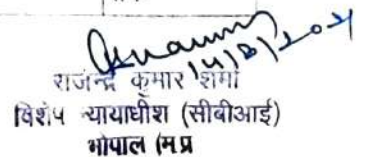 14/8/2021
राजेन्द्र कुमार शर्मा
विशेष न्यायाधीश (सीबीआई)
भोपाल (म.प्र